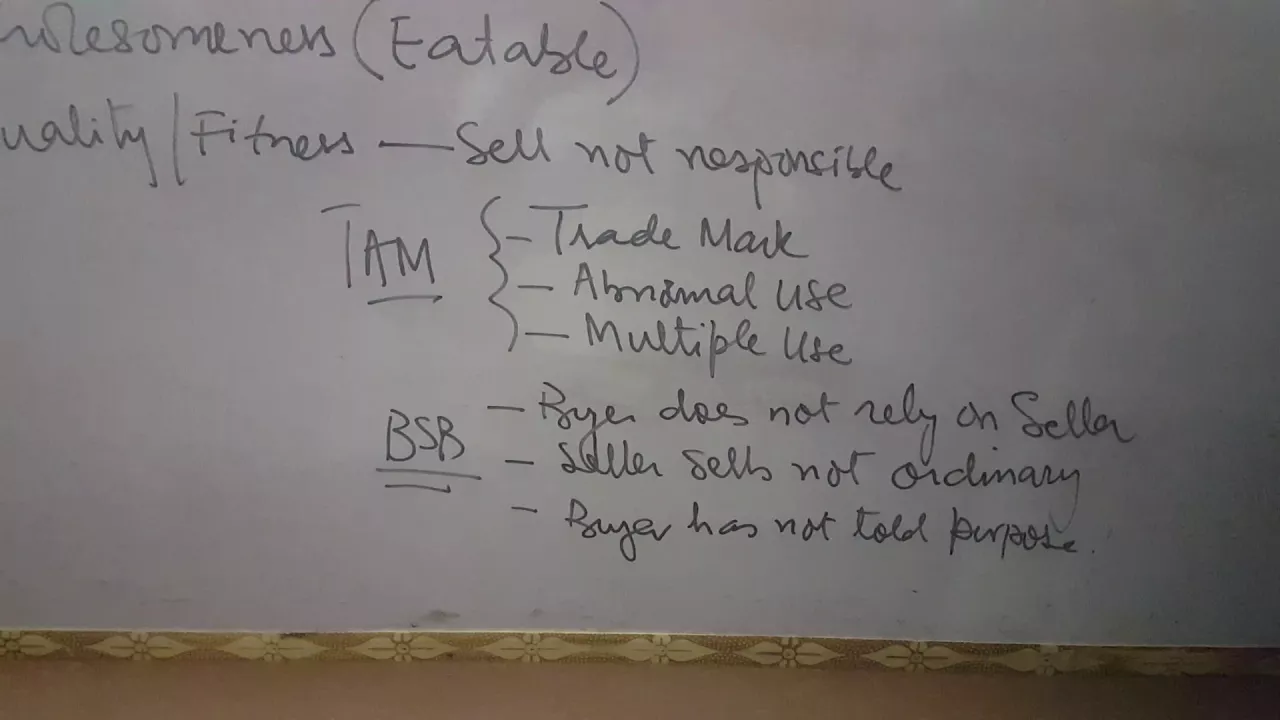 holesomeness (Eatable)
uality/Fitness — Sell not responsible
TAM { - Trade Mark
- Abnormal use
- Multiple Use
BSB - Byer does not rely on Seller
- Seller sells not ordinary
- Buyer has not told purpose.